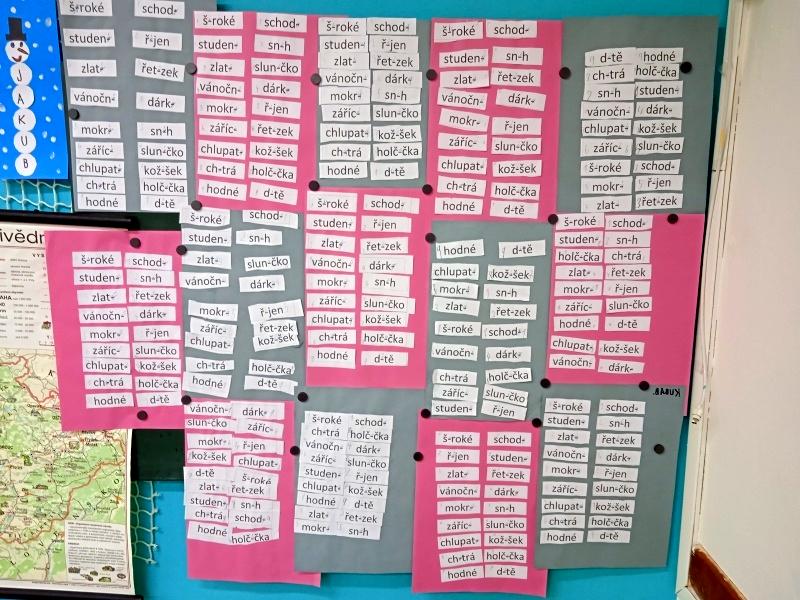 JAKUB
š-roké schod-
studen- ř-jen
zlat- řet-zek
vánočn- dárk-
mokr- sn-h
zářic- slun-čko
chlupat- kož-šek
ch-trá holč-čka
hodné d-tě
š-roké schod-
studen- sn-h
zlat- slun-čko
vánočn- dárk-
mokr- ř-jen
zářic- řet-zek
chlupat- kož-šek
ch-trá holč-čka
hodné d-tě
š-roké schod-
studen- ř-jen
zlat- řet-zek
vánočn- dárk-
mokr- sn-h
zářic- slun-čko
chlupat- kož-šek
ch-trá holč-čka
hodné d-tě
š-roké schod-
studen- sn-h
zlat- řet-zek
vánočn- dárk-
mokr- ř-jen
zářic- slun-čko
chlupat- kož-šek
ch-trá holč-čka
hodné d-tě
d-tě hodné
ch-trá holč-čka
sn-h studen-
vánočn- dárk-
chlupat- kož-šek
zářic- slun-čko
š-roké schod-
mokr- ř-jen
zlat- řet-zek
ivědn
š-roké schod-
studen- sn-h
zlat- řet-zek
vánočn- dárk-
mokr- ř-jen
zářic- slun-čko
chlupat- kož-šek
ch-trá holč-čka
hodné d-tě
š-roké schod-
studen- sn-h
zlat- slun-čko
vánočn- dárk-
mokr- ř-jen
zářic- řet-zek
chlupat- kož-šek
ch-trá holč-čka
hodné d-tě
š-roké schod-
studen- ř-jen
zlat- řet-zek
vánočn- dárk-
mokr- sn-h
zářic- slun-čko
chlupat- kož-šek
ch-trá holč-čka
hodné d-tě
hodné d-tě
chlupat- kož-šek
mokr- sn-h
zlat- řet-zek
š-roké schod-
vánočn- dárk-
ch-trá holč-čka
zářic- slun-čko
studen- ř-jen
š-roké schod-
studen- sn-h
holč-čka ch-trá
zlat- řet-zek
mokr- ř-jen
zářic- slun-čko
hodné d-tě
chlupat- kož-šek
vánočn- dárk-
KUBA B.
vánočn- dárk-
slun-čko zářic-
mokr- ř-jen
kož-šek chlupat-
d-tě š-roké
zlat- řet-zek
studen- sn-h
ch-trá schod-
hodné holč-čka
š-roké schod-
ch-trá holč-čka
vánočn- dárk-
zářic- slun-čko
studen- ř-jen
chlupat- kož-šek
hodné d-tě
zlat- řet-zek
mokr- sn-h
š-roké schod-
ř-jen studen-
zlat- řet-zek
vánočn- dárk-
mokr- sn-h
zářic- slun-čko
chlupat- kož-šek
ch-trá holč-čka
hodné d-tě
š-roké schod-
studen- sn-h
zlat- řet-zek
vánočn- dárk-
mokr- ř-jen
zářic- slun-čko
chlupat- kož-šek
ch-trá holč-čka
hodné d-tě